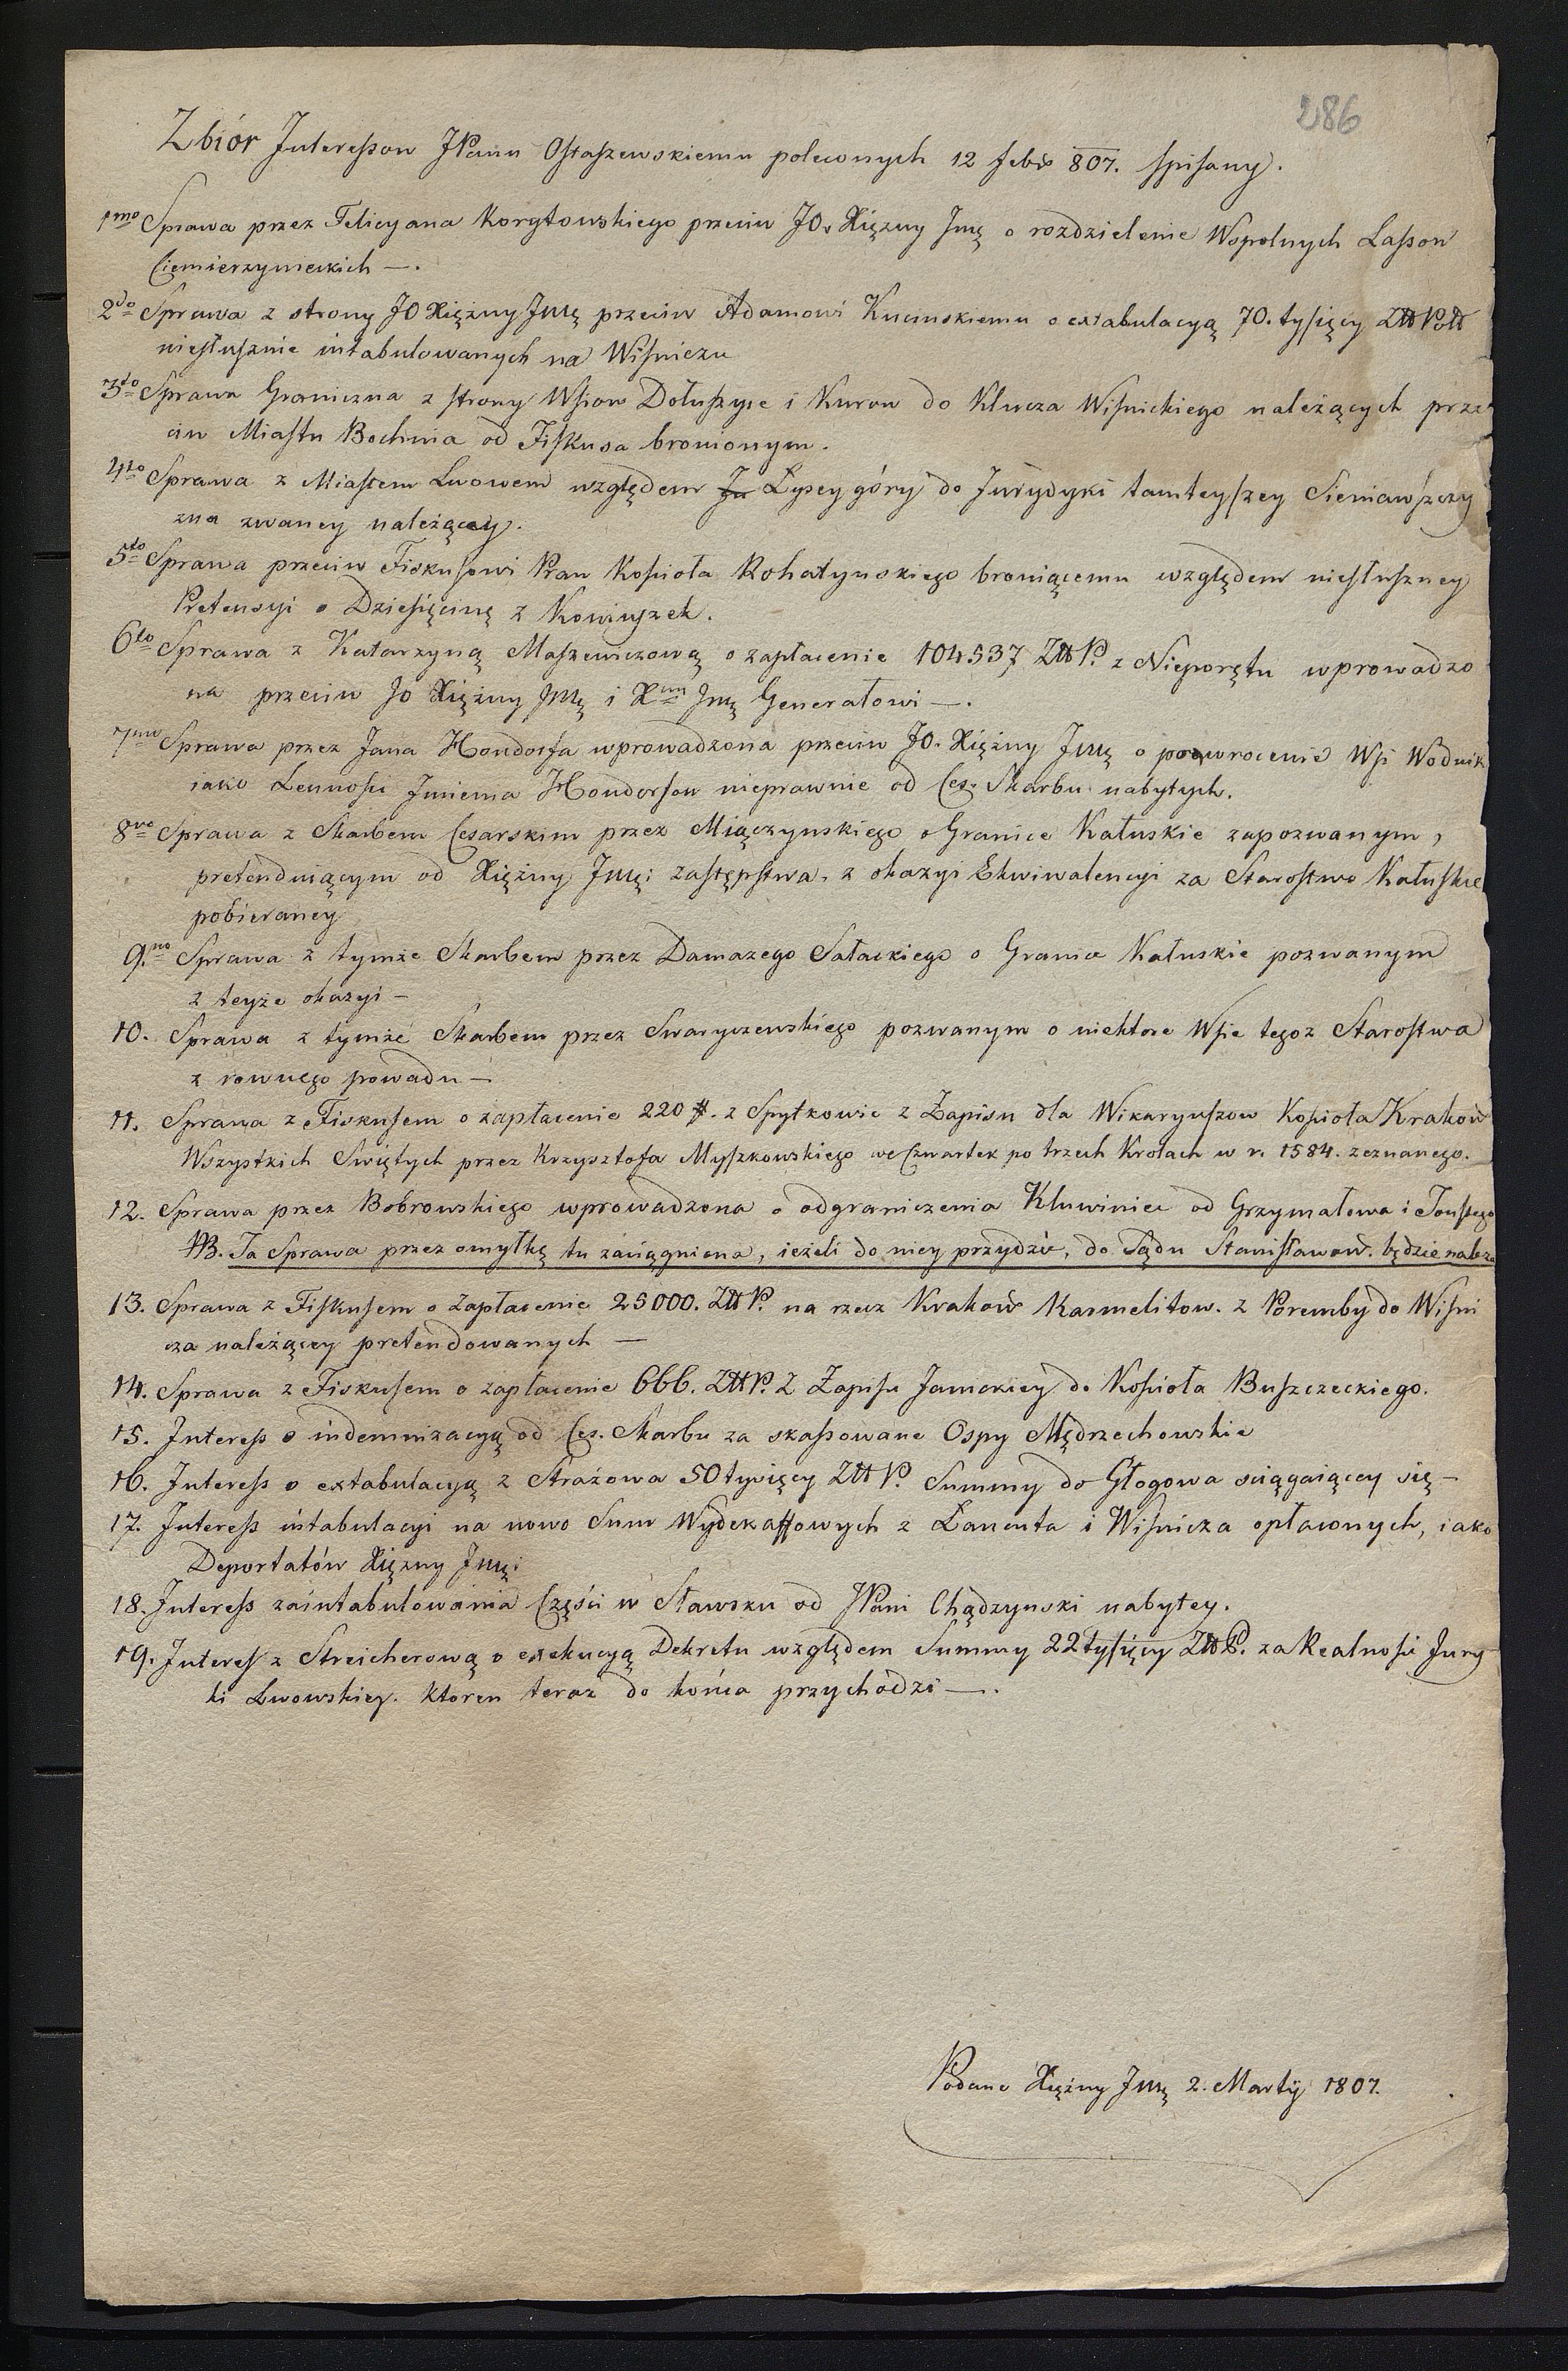 286
Zbiór Interessow JPanu Ostaszewskiemu poleconych 12 febris 807. spisany.
1mo Sprawa przez Felicyana Korytowskiego przeciw JO. Xiężny Jmę o rozdzielenie Wspolnych Lassow
Ciemierzynieckich —.
2do Sprawa z strony JO Xiężny Jmę przeciw Adamowi Kucinskiemu o extabulacyą 70. tysięcy Złł Poll
niesłusznie intabulowanych na Wisniczu
3tio Sprawa Graniczna z strony Wsiow Dołuszyce i Kurow do Klucza Wisnickiego należących prze
ciw Miastu Bochnia od Fiskusa bronionym.
4to Sprawa z Miastem Lwowem względem Ju Łysey góry do Jurydyki tamteyszey Sieniawszczy
zna zwaney należącey.
5to Sprawa przeciw Fiskusowi Praw Kosciola Rohatynskiego broniącemu względem niesłuszney
Pretensyi o Dziesięcinę z Koniuszek.
6to Sprawa z Katarzyną Maszewiczową o zapłacenie 104537 Złł P. z Nieporętu wprowadzo
na przeciw JO Xiężny Jmę i Xciu Jmę Generałowi —.
7mo Sprawa przez Jana Hondorfa wprowadzona przeciw JO. Xiężny Jmę o powrocenie Wsi Wodnik
iako Lennosci Jmienia Hondorfow nieprawnie od Ces. Skarbu nabytych.
8vo Sprawa z Skarbem Cesarskim przez Miączynskiego o Granice Kałuskie zapozwanym,
pretenduiącym od Xiężny Jmę: zastępstwa, z okazyi Ekwiwalencyi za Starostwo Kałuskie
pobieraney
9.no Sprawa z tymże Skarbem przez Damazego Sałackiego o Granice Kałuskie pozwanym
z teyże okazyi —
10. Sprawa z tymże Skarbem przez Swaryczewskiego pozwanym o niektore Wsie tegoz Starostwa
z rownego powodu —
11. Sprawa z Fiskusem o zapłacenie 220 #. z Spytkowic z Zapisu dla Wikaryuszow Kosciola Krakow
Wszystkich Swiętych przez Krzysztofa Myszkowskiego we Czwartek po trzech Krolach w r. 1584. zeznanego.
12. Sprawa przez Bobrowskiego wprowadzona o odgraniczenia Kluwiniec od Grzymałowa i Toustego
NB. Ta Sprawa przez omyłkę tu zaciągniona, ieżeli do niey przydzie, do Sądu Stanisławow. będzie należ
13. Sprawa z Fiskusem o Zapłacenie 25000. Złł P. na rzecz Krakow Karmelitow. z Poremby do Wisni
cza należącey pretendowanych —
14. Sprawa z Fiskusem o zapłacenie 666. Złł P. z Zapisu Janickiey do Kosciola Buszczeckiego.
15. Interess o indemnizacyą od Ces. Skarbu za skassowane Ospy Mędrzechowskie
16. Interess o extabulacyą z Strażowa 50 tysięcy Złł P. Summy do Głogowa sciągaiącey się —
17. Interess intabulacyi na nowo Sum Wyderkaffowych z Łancuta i Wisnicza opłaconych, iako
Deportatów Xiężny Jmę:
18. Interess zaintabulowania Części w Stawsku od JPani Chądzynski nabytey.
19. Interess z Streicherową o exekucyą Dekretu względem Summy 22 tysięcy Złł P. za Realnosci Jury
ki Lwowskiey. ktoren teraz do końca przychodzi —.
Podane Xiężny Jmę 2. Martÿ 1807.